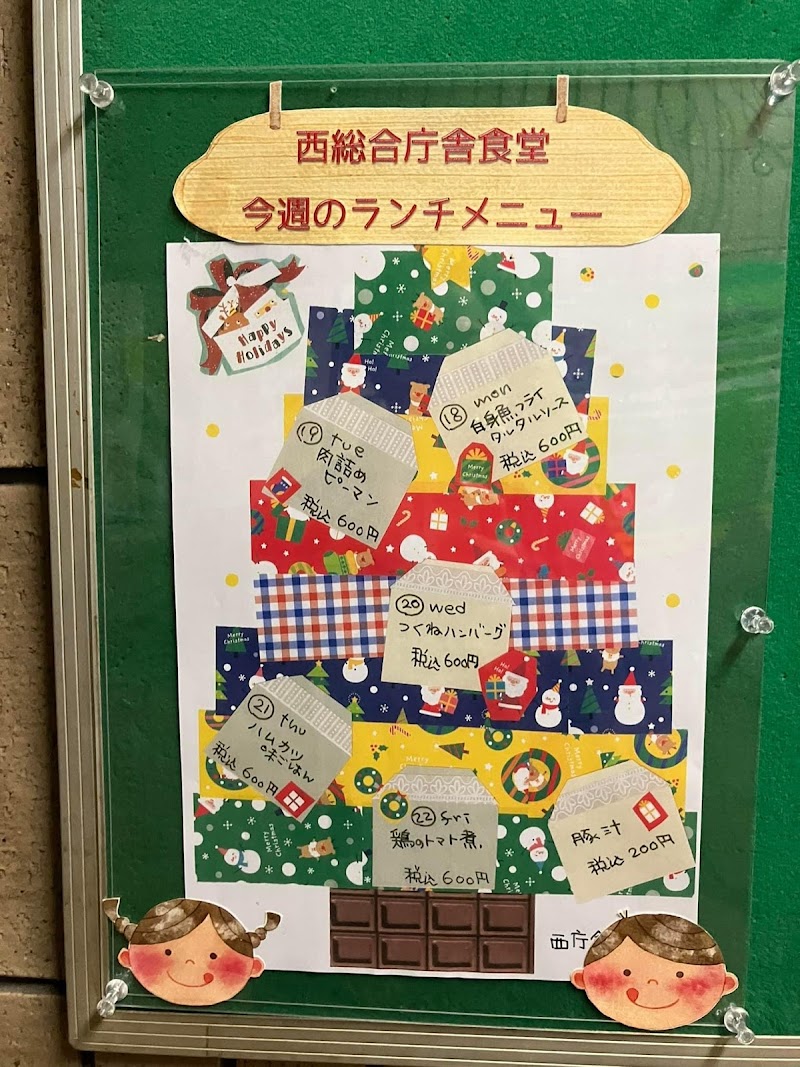 西総合庁舎食堂
今週のランチメニュー
Happy
Holidays
⑱ mon
白身魚フライ
タルタルソース
税込600円
⑲ tue
肉詰め
ピーマン
税込600円
⑳ wed
つくねハンバーグ
税込600円
㉑ thu
ハムカツ
味ごはん
税込600円
㉒ fri
鶏のトマト煮
税込600円
豚汁
税込200円
西庁